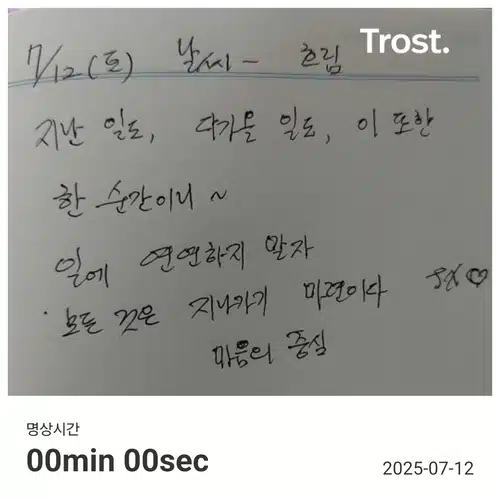 Trost.
7/12(토) 날씨 - 흐림
지난 일도, 다가올 일도, 이 또한
한 순간이니 ~
일에 연연하지 말자
· 모든 것은 지나가기 마련이다
마음의 중심
명상시간
00min 00sec
2025-07-12